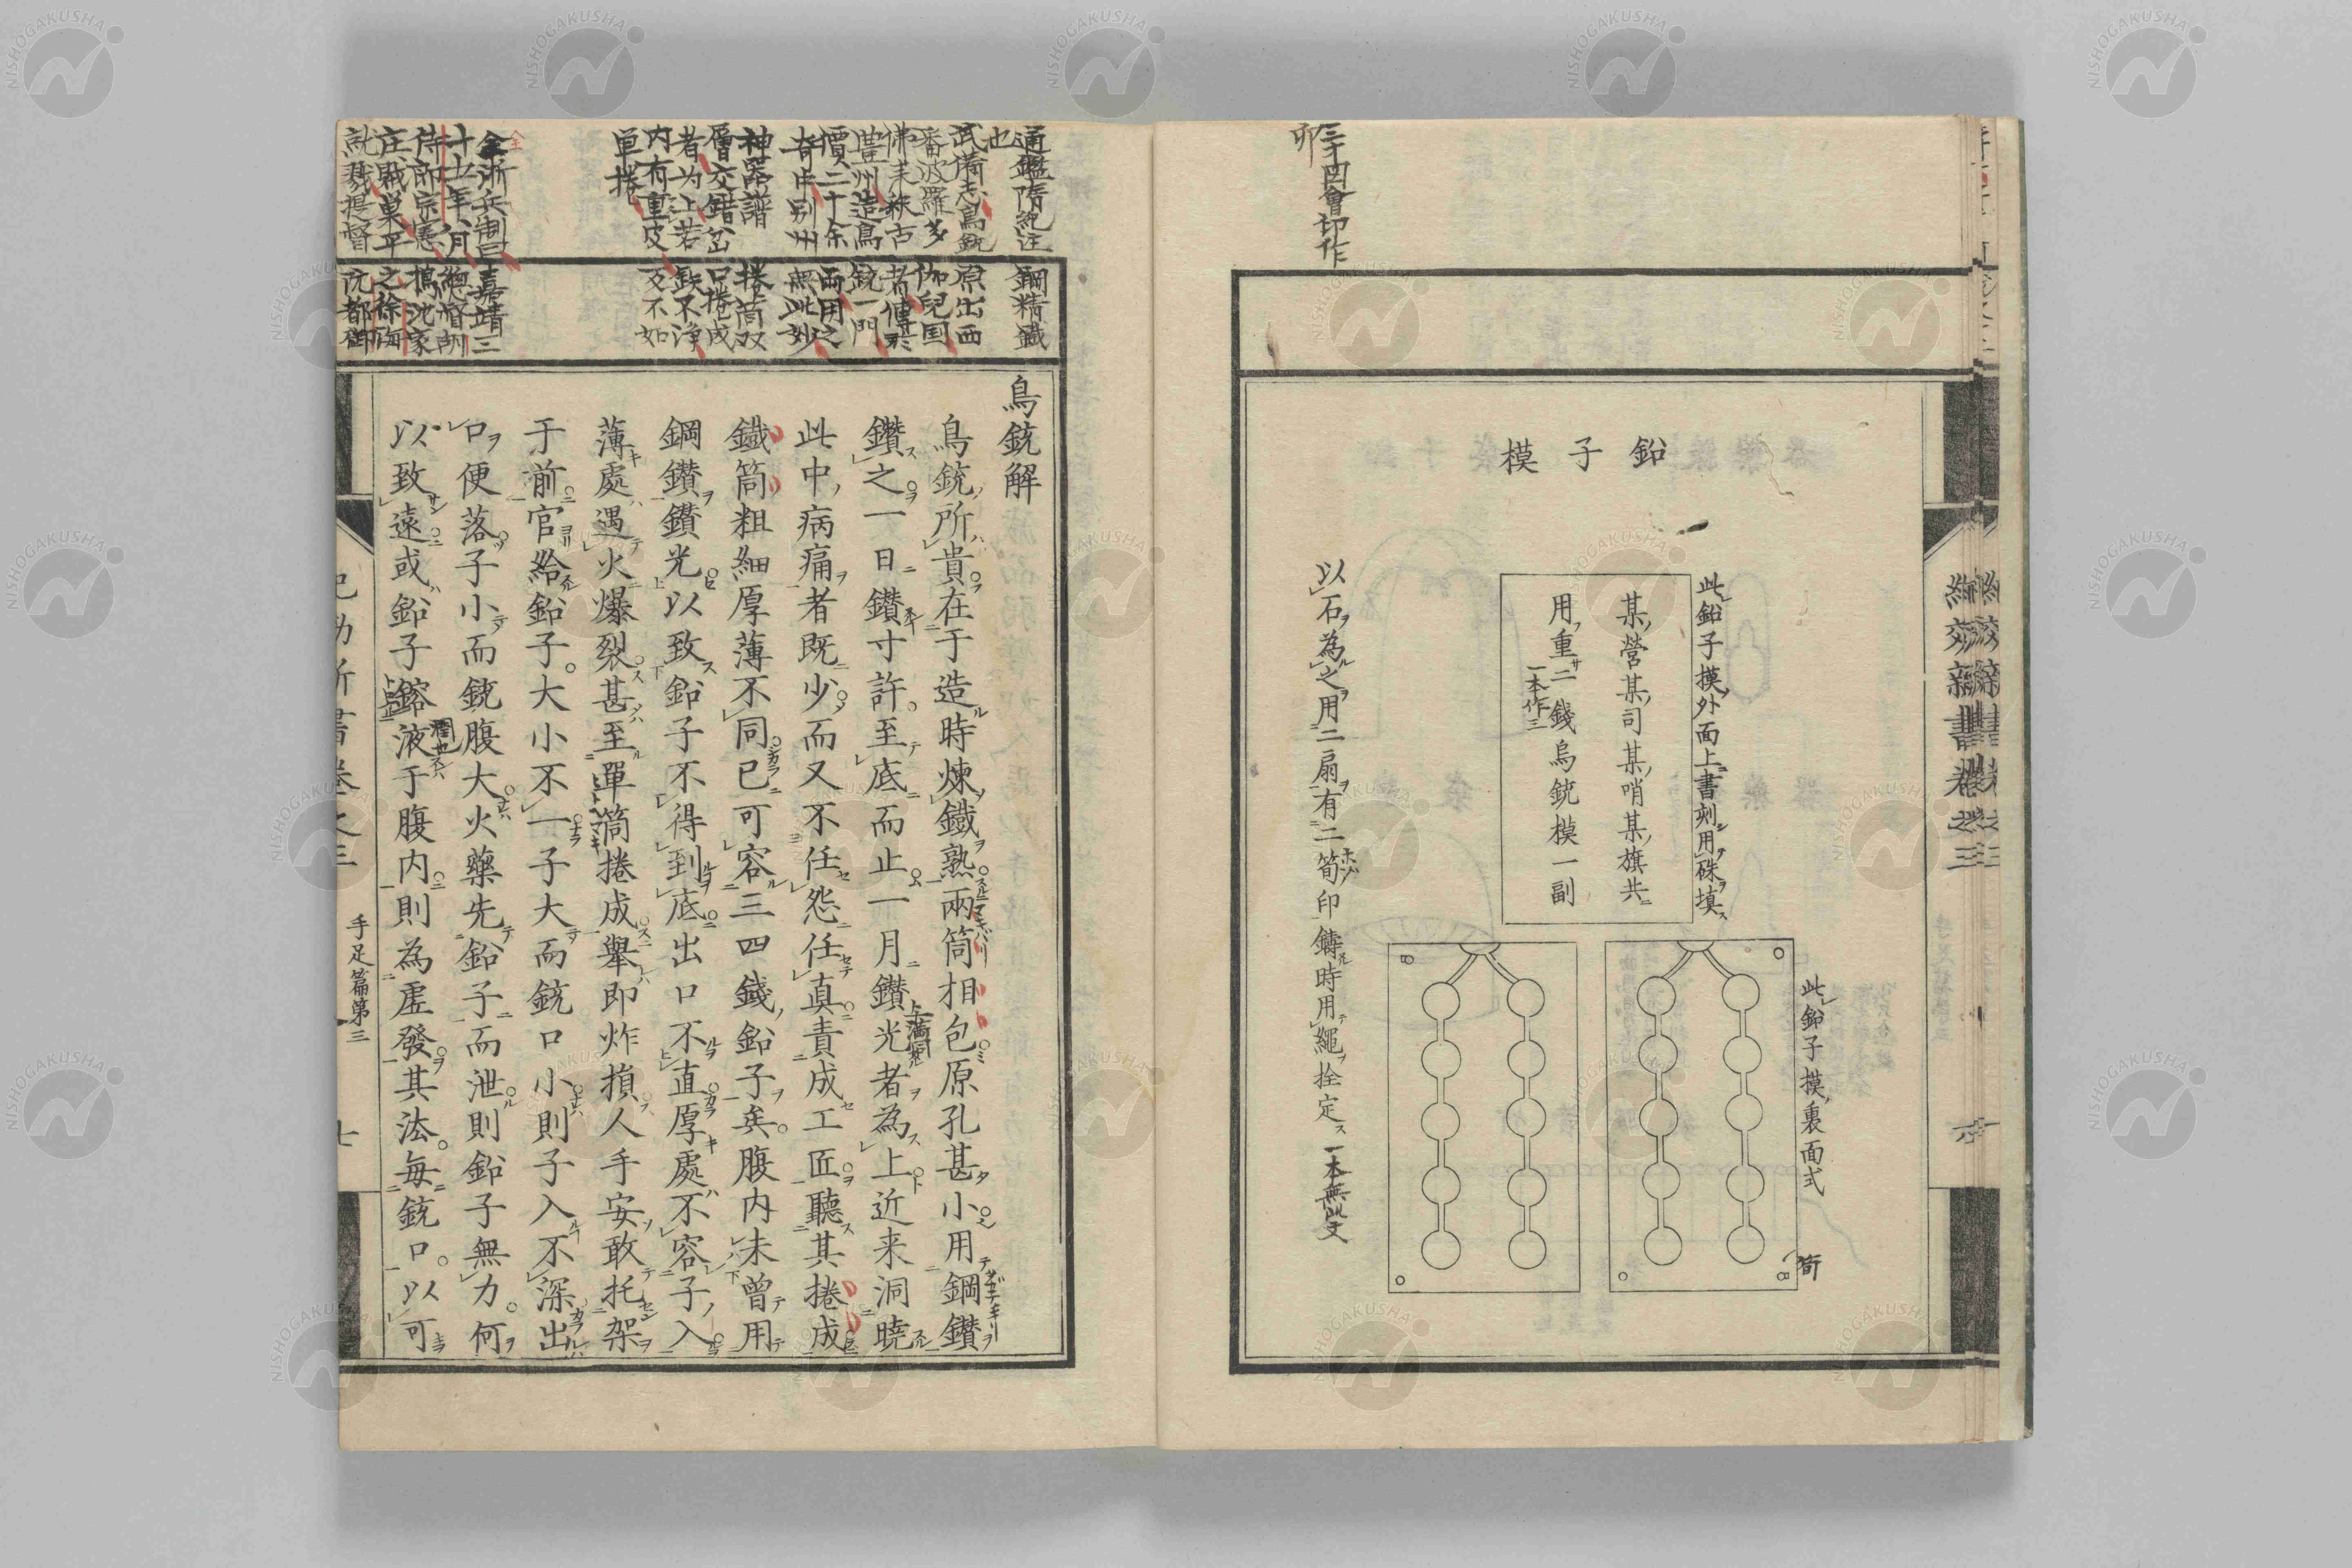 三才図會切作
卯
鉛子模
此鉛子模裏面式
此鉛子摸外面上書刻用硃填
某營某司某哨某旗共
用重二錢鳥銃模一副
一本作三
以石為之用二扇有二筍印鑄時用繩拴定
一本無此文
通鑑隋紀注
鋼精鐵
也
武備志鳥銃
原出西
番波羅多
伽兒国
佛来釈古
者傳於
豊州造鳥
銃一門
價二十余
両用之
奇中別州
無此妙
神器譜
捲筒双
層交錯岔
口捲成
者为上若
鉄不浄
内有重皮
又不如
単捲
全浙兵制曰
嘉靖三
十五年八月
總督胡
侍郎宗憲
搗沈家
庄賊巣平
之徐海
就戮提督
阮都御
鳥銃解
鳥銃所貴在于造時煉鐵熟兩筒相包原孔甚小用鋼鑽
鑽之一日鑽寸許至底而止一月鑽光者為上近来洞曉
此中病痛者既少而又不任怨任真責成工匠聽其捲成
鐵筒粗細厚薄不同已可容三四錢鉛子矣腹内未曾用
鋼鑽鑽光以致鉛子不得到底出口不直厚處不容子入
薄處遇火爆裂甚至單筒捲成舉即炸損人手安敢托架
于前官給鉛子大小不一子大而銃口小則子入不深出
口便落子小而銃腹大火藥先鉛子而泄則鉛子無力何
以致遠或鉛子鎔液于腹内則為虚發其法每銃口以可
手足篇第三